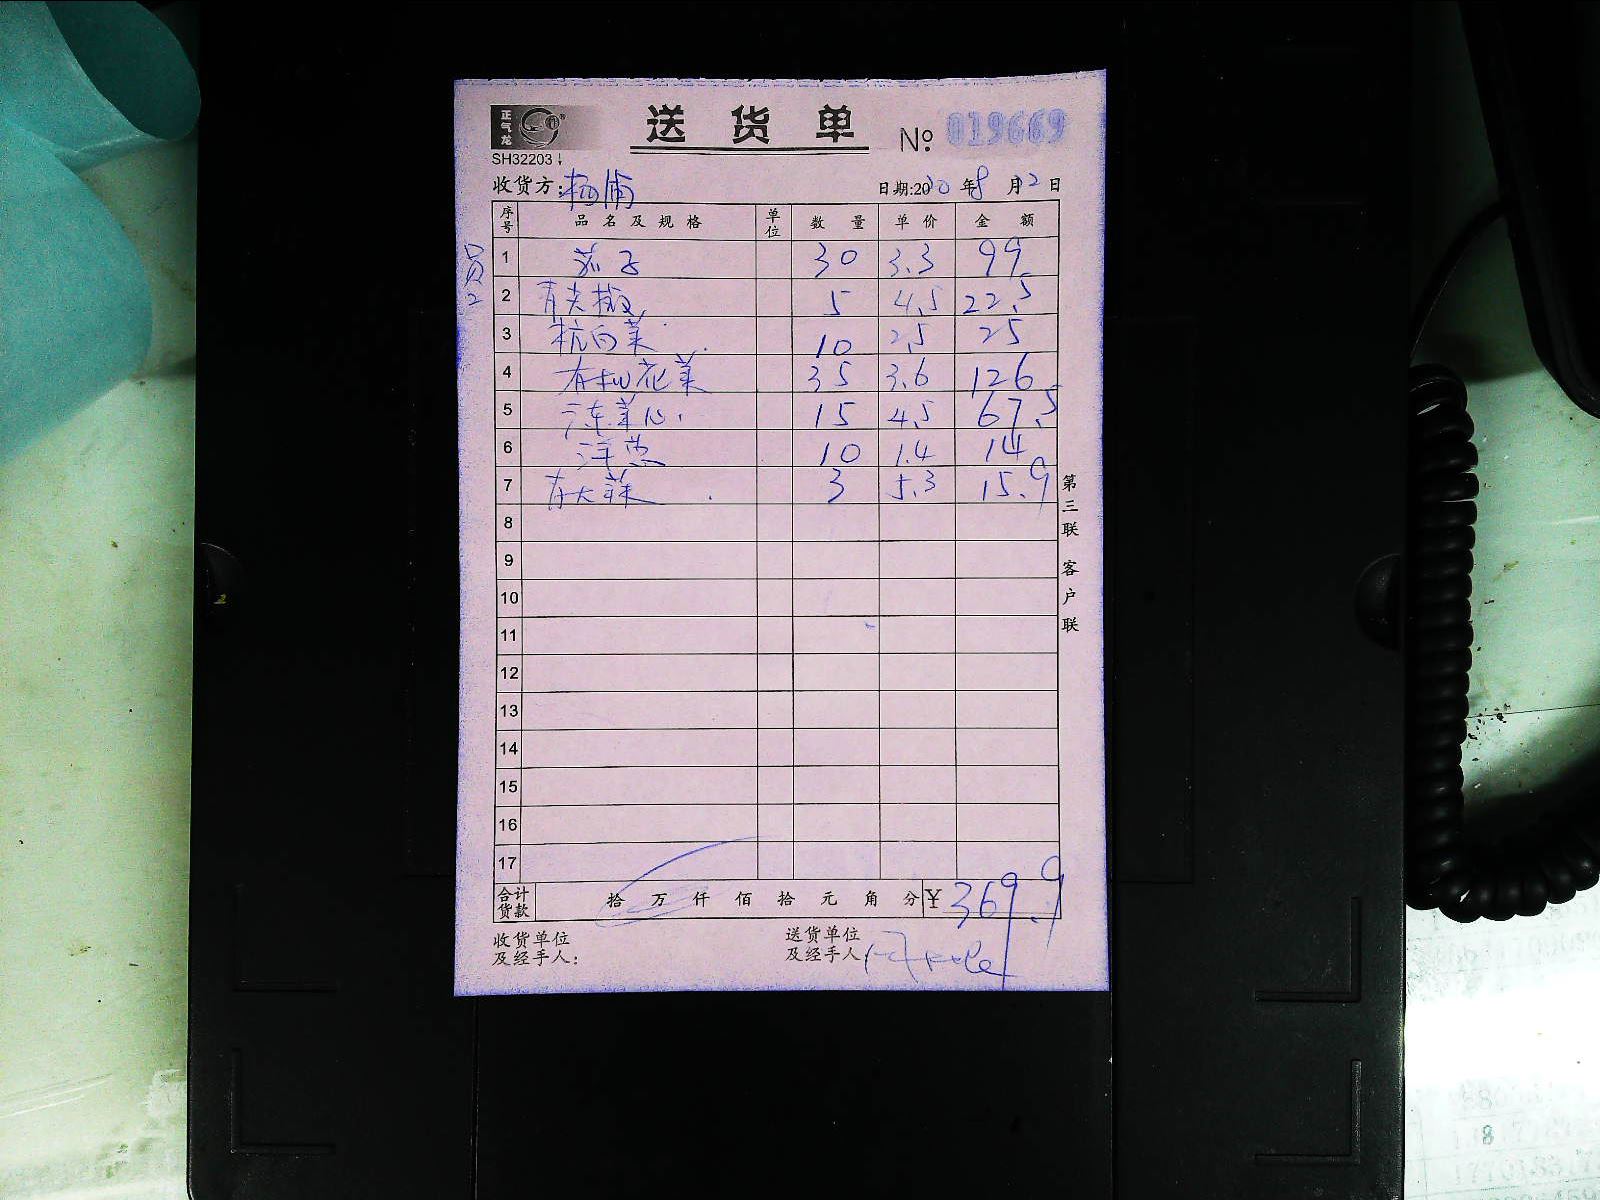 正气龙
送货单 № 019669
SH32203
收货方: 杨浦 日期:2020年8月12日
序号 品名及规格 单位 数量 单价 金额
1 茄子 30 3.3 99
2 青尖椒 5 4.5 22.5
3 杭白菜 10 2.5 25
4 有机花菜 35 3.6 126
5 广东菜心 15 4.5 67.5
6 洋葱 10 1.4 14
7 3 5.3 15.9
8
9
10
11
12
13
14
15
16
17
第三联 客户联
合计货款 拾 万 仟 佰 拾 元 角 分 ¥ 369.9
收货单位及经手人:
送货单位及经手人